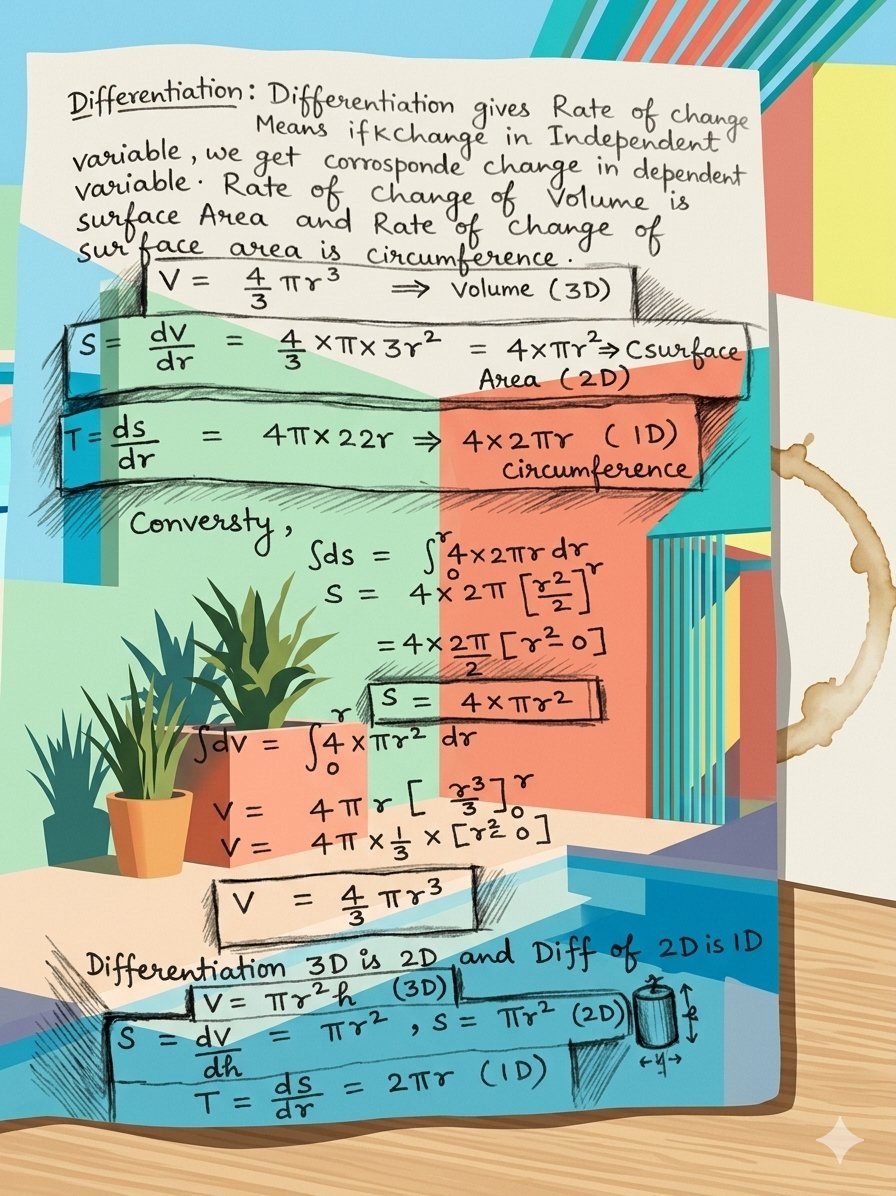 Differentiation: Differentiation gives Rate of change
Means if K change in Independent
variable, we get corrosponde change in dependent
variable. Rate of change of Volume is
surface Area and Rate of change of
surface area is circumference.
V = 4/3 πr³ ⇒ Volume (3D)
S = dv/dr = 4/3 × π × 3r² = 4×πr² ⇒ Csurface
Area (2D)
T = ds/dr = 4π × 22r ⇒ 4×2πr (1D)
circumference
Conversty,
∫ds = ∫₀ʳ 4×2πr dr
S = 4× 2π [r²/2]ʳ
= 4× 2π/2 [r² - 0]
S = 4×πr²
∫dv = ∫₀ʳ 4×πr² dr
V = 4π r [r³/3]₀ʳ
V = 4π × 1/3 × [r² - 0]
V = 4/3 πr³
Differentiation 3D is 2D and Diff of 2D is 1D
V = πr²h (3D)
S = dv/dh = πr², S = πr² (2D)
T = ds/dr = 2πr (1D)